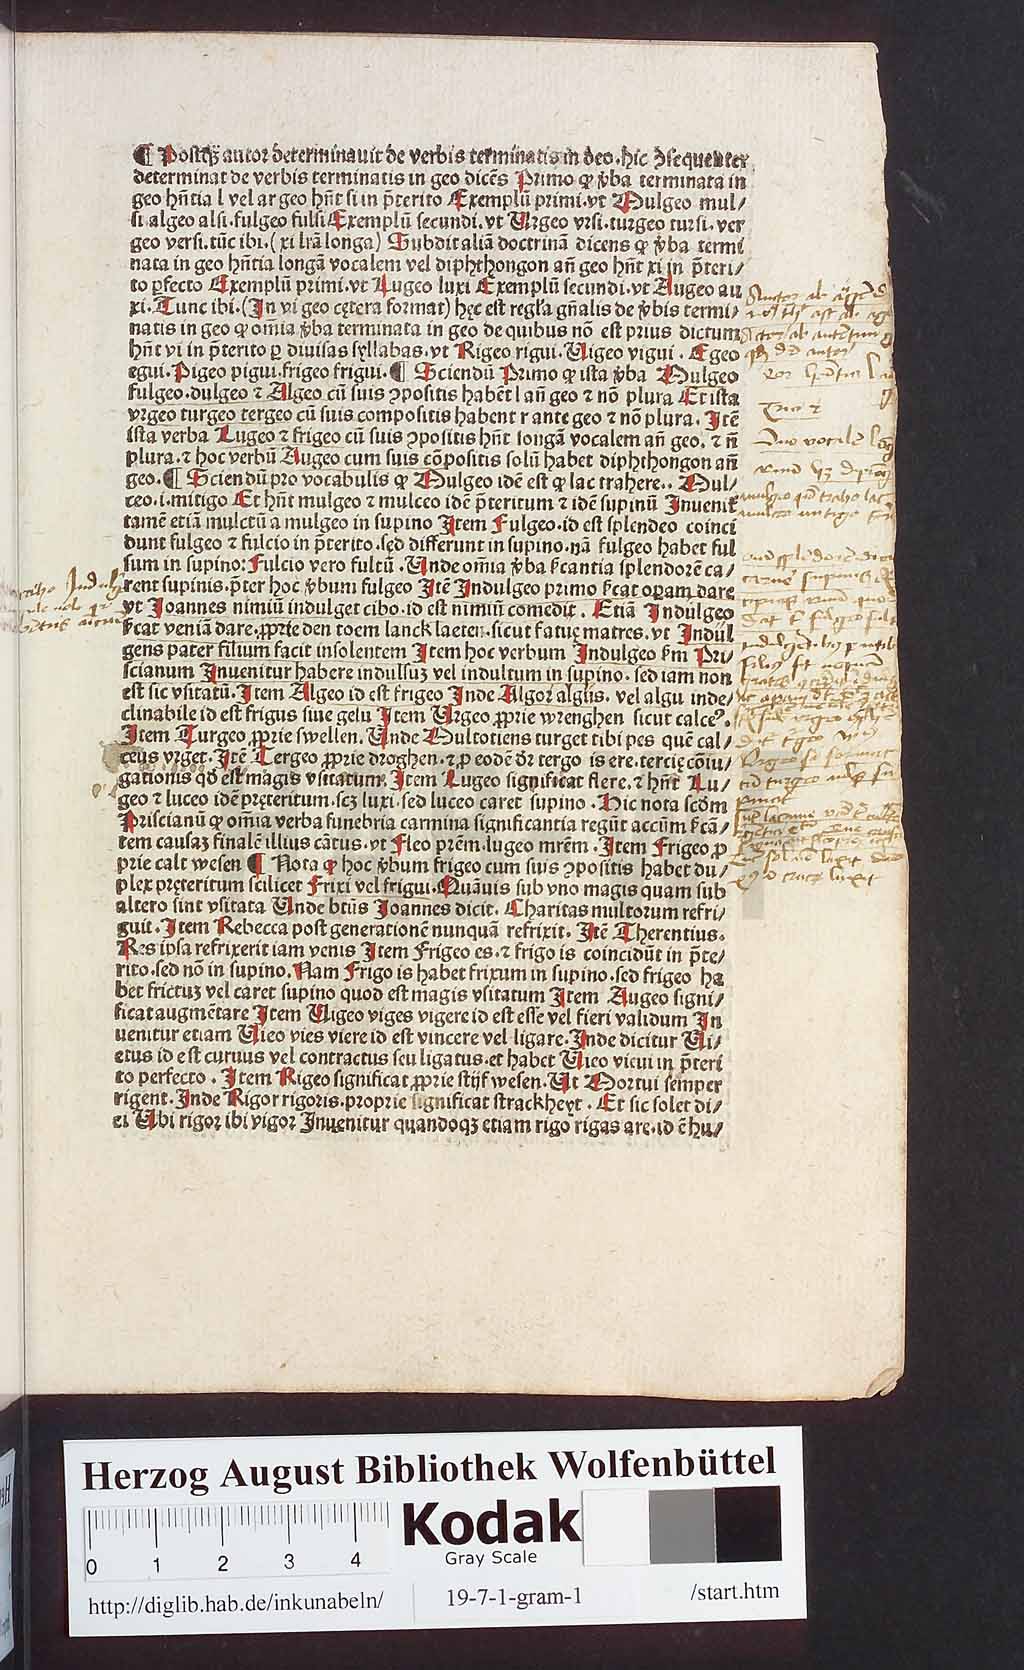 ¶ Postqꝫ autor determinauit de verbis terminatis in deo. hic ↄsequenter
determinat de verbis terminatis in geo dicēs Primo ꝙ v̾ba terminata in
geo hn̄tia l vel ar geo hn̄t si in p̄terito Exemplū primi. vt Mulgeo mul/
si. algeo alsi. fulgeo fulsi Exemplū secundi. vt Urgeo vrsi. turgeo tursi. ver
geo versi. tūc ibi. (xi lr̄a longa) Subdit aliā doctrinā dicens ꝙ v̾ba termi
nata in geo hn̄tia longā vocalem vel diphthongon an̄ geo hn̄t xi in p̄teri/
to ꝑfecto Exemplū primi. vt Lugeo luxi Exemplū secundi. vt Augeo au
xi. Tunc ibi. (In vi geo cętera format) hęc est regl̓a gn̄alis de v̾bis termi/
natis in geo ꝙ om̄ia v̾ba terminata in geo de quibus nō est prius dictum
hn̄t vi in p̄terito ꝑ diuisas syllabas. vt Rigeo rigui. Uigeo vigui. Egeo
egui. Pigeo pigui. frigeo frigui. ¶ Sciendū Primo ꝙ ista v̾ba Mulgeo
fulgeo. dulgeo ⁊ Algeo cū suis ↄpositis habēt l an̄ geo ⁊ nō plura Et ista
vrgeo turgeo tergeo cū suis compositis habent r ante geo ⁊ nō plura. Itē
ista verba Lugeo ⁊ frigeo cū suis ↄpositis hn̄t longā vocalem an̄ geo. ⁊ n̄
plura. ⁊ hoc verbū Augeo cum suis cōpositis solū habet diphthongon an̄
geo. ¶ Sciendū pro vocabulis ꝙ Mulgeo idē est ꝙ lac trahere.. Mul/
ceo. i. mitigo Et hn̄t mulgeo ⁊ mulceo idē p̄teritum ⁊ idē supinū Inuenit̄
tamē etiā mulctū a mulgeo in supino Item Fulgeo. id est splendeo coinci
dunt fulgeo ⁊ fulcio in p̄terito. sed differunt in supino. nā fulgeo habet ful
sum in supino: Fulcio vero fultū. Unde om̄ia v̾ba ſ̓cantia splendorē ca/
rent supinis. p̄ter hoc v̾bum fulgeo Itē Indulgeo primo ſ̓cat oꝑam dare
vt Joannes nimiū indulget cibo. id est nimiū comedit. Etiā Indulgeo
ſ̓cat veniā dare. ꝓprie den toem lanck laeten. sicut fatuę matres. vt Indul
gens pater filium facit insolentem Item hoc verbum Indulgeo ẜm Pri/
scianum Inuenitur habere indulsuꝫ vel indultum in supino. sed iam non
est sic vsitatū. Item Algeo id est frigeo Inde Algor algus. vel algu inde/
clinabile id est frigus siue gelu Item Urgeo ꝓprie wrenghen sicut calceꝰ.
Item Turgeo ꝓprie swellen. Unde Multotiens turget tibi pes quē cal/
ceus vrget. Itē Tergeo ꝓprie droghen. ⁊ ꝓ eodē dr̄ tergo is ere. tercię cōiu/
gationis qd̓ est magis vsitatum. Item Lugeo significat flere. ⁊ hn̄t Lu/
geo ⁊ luceo idē pręteritum. scꝫ luxi. sed luceo caret supino. Hic nota scd̓m
Priscianū ꝙ om̄ia verba funebria carmina significantia regūt accūm ſ̓cā/
tem causaꝫ finalē illius cātus. vt Fleo prēm. lugeo mrēm. Item Frigeo ꝓ
prie calt wesen ¶ Nota ꝙ hoc v̾bum frigeo cum suis ↄpositis habet du/
plex pręteritum scilicet Frixi vel frigui. Quāuis sub vno magis quam sub
altero sint vsitata Unde btūs Joannes dicit. Charitas multorum refri/
guit. Item Rebecca post generationē nunquā refrixit. Itē Therentius.
Res ipsa refrixerit iam venis Item Frigeo es. ⁊ frigo is coincidūt in p̄te/
rito. sed nō in supino. Nam Frigo is habet frixum in supino. sed frigeo ha
bet frictuꝫ vel caret supino quod est magis vsitatum Item Augeo signi/
ficat augmētare Item Uigeo viges vigere id est esse vel fieri validum In
uenitur etiam Uieo vies viere id est vincere vel ligare. Inde dicitur Ui/
etus id est curuus vel contractus seu ligatus. et habet Uieo vieui in p̄teri
to perfecto. Item Rigeo significat ꝓprie stijf wesen. Ut Mortui semper
rigent. Inde Rigor rigoris. proprie significat strackheyt. Et sic solet di/
ci Ubi rigor ibi vigor Inuenitur quandoqꝫ etiam rigo rigas are. id ē hu/
Herzog August Bibliothek Wolfenbüttel
0 1 2 3 4
Kodak
Gray Scale
http://diglib.hab.de/inkunabeln/
19-7-1-gram-1
/start.htm